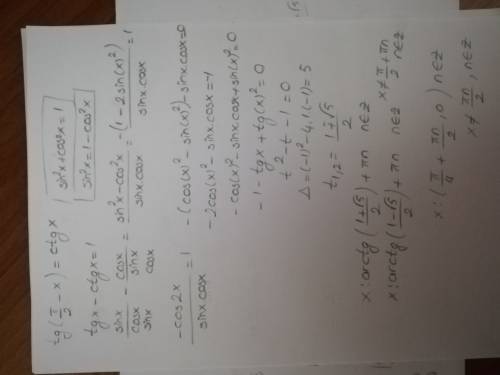 tg(π/2 - x) = ctgx
sin²x + cos²x = 1
sin²x = 1 - cos²x
tgx - ctgx = 1
sinx/cosx - cosx/sinx = (sin²x - cos²x)/(sinx.cosx) = -(1 - 2sin(x)²)/(sinx.cosx) = 1
cosx sinx
-cos2x/(sinx.cosx) = 1
-(cos(x)² - sin(x)²) - sinx.cosx = 0
-2cos(x)² - sinx.cosx = -1
-cos(x)² - sinx.cosx + sin(x)² = 0
-1 - tgx + tg(x)² = 0
t² - t - 1 = 0
Δ = (-1)² - 4.1.(-1) = 5
t1,2 = (1 ± √5)/2
x: arctg((1+√5)/2) + πn n∈Z x ≠ π/2 + πn
x: arctg((1-√5)/2) + πn n∈Z n∈Z
x: (π/4 + πn/2, 0) n∈Z
x ≠ πn/2, n∈Z